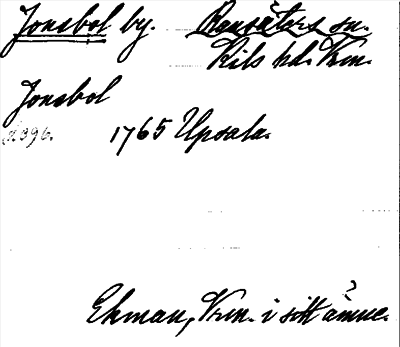 Jonsbol by. Ransäters sn.
Kils hd. Vrm.
Jonsbol
N 396. 1765 Upsala.
Ekman, Vrm. i sitt ämne.